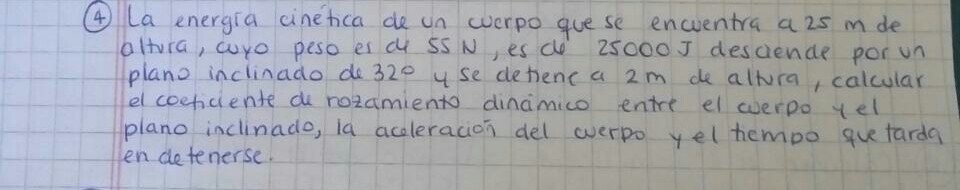 ④ La energía cinética de un cuerpo que se encuentra a 25 m de
altura, cuyo peso es de 55 N, es de 25000 J desciende por un
plano inclinado de 32º y se detiene a 2m de altura, calcular
el coeficiente de rozamiento dinámico entre el cuerpo y el
plano inclinado, la aceleración del cuerpo y el tiempo que tarda
en detenerse.